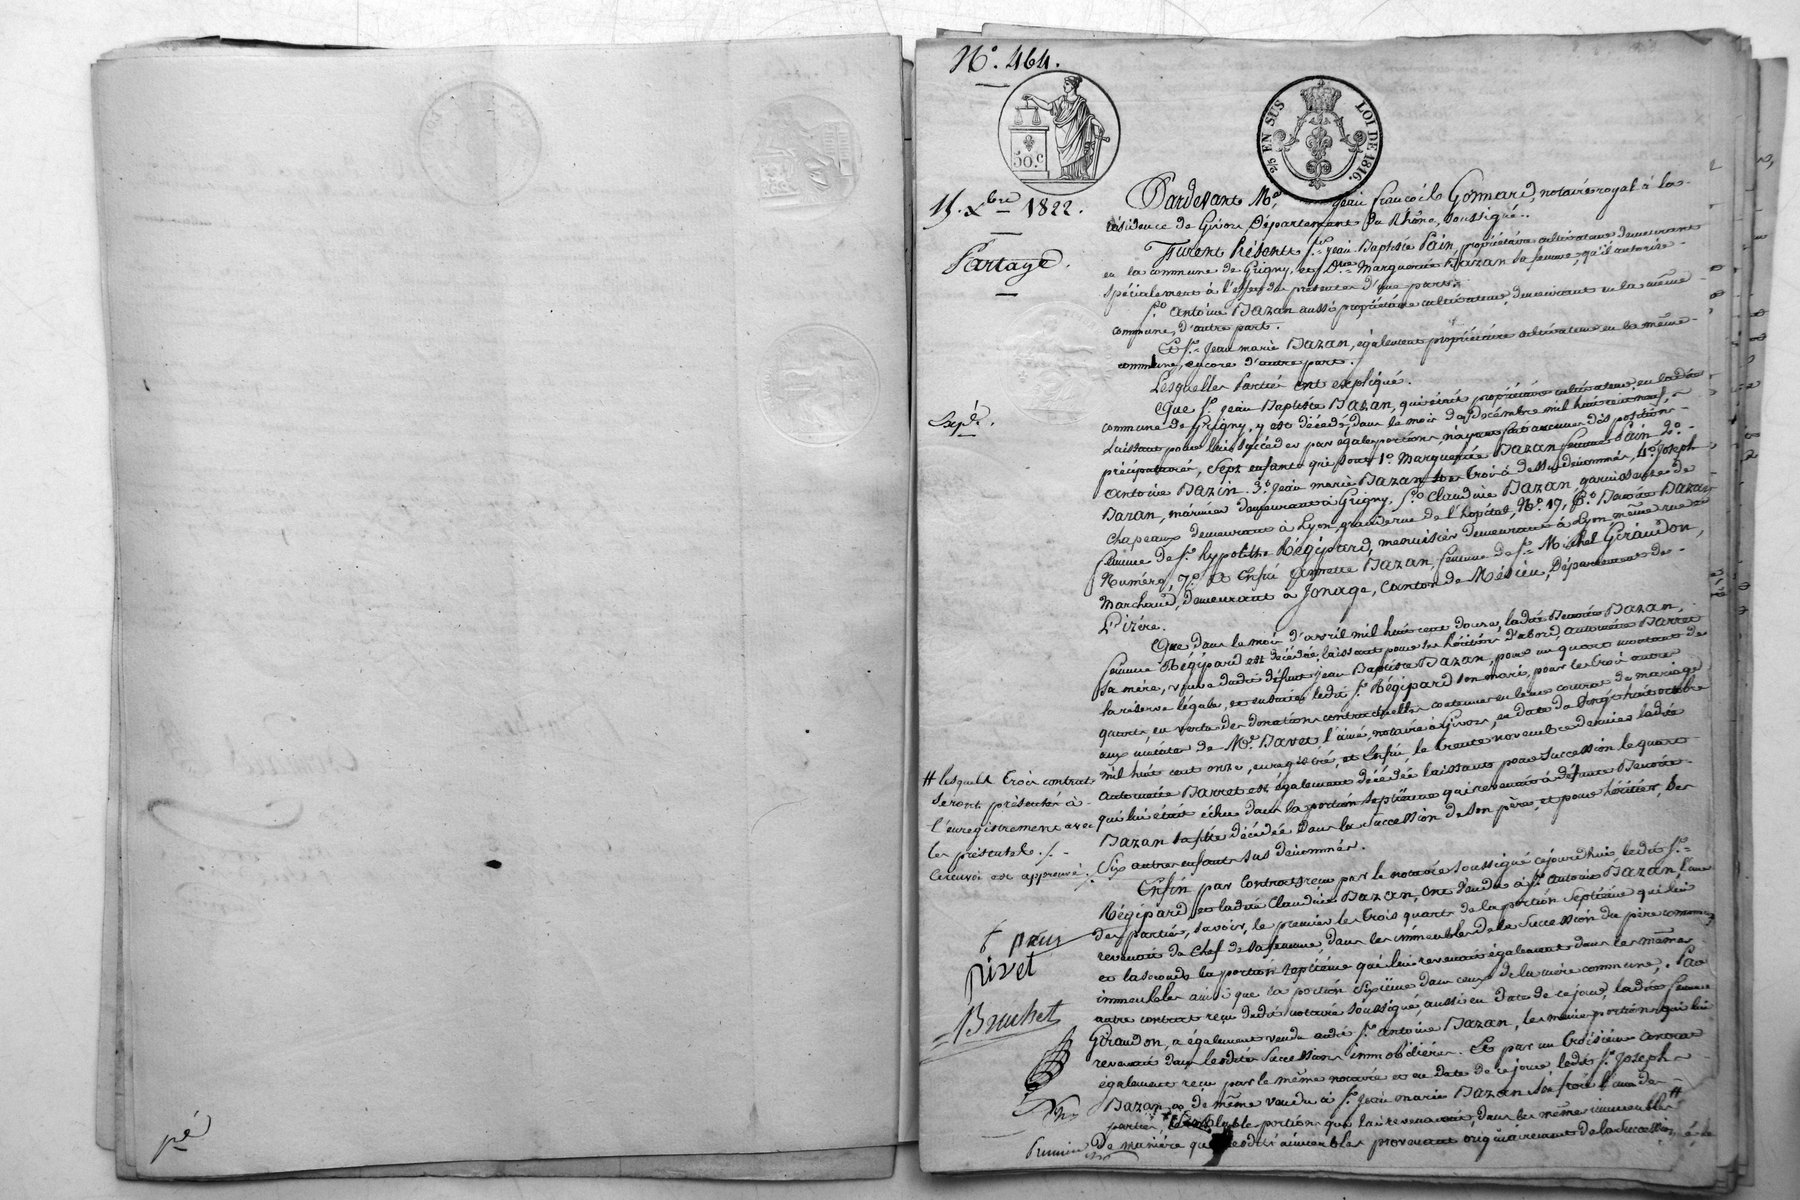 N.° 464.
50.c
2/5 EN SUS LOI DE 1816.
15. Xbre 1822.
Partage.
Expé.
Pardevant Me. Jean François Gonnard, notaire royal à la
résidence de Givors, Département du Rhône, soussigné..
Furent Présents Sr. Jean Baptiste Pain, propriétaire cultivateur demeurant
en la commune de Grigny, et Dme. Marguerite Bazan sa femme, qu'il autorise
spécialement à l'effet des présentes d'une part.
Sr. antoine Bazan aussi propriétaire cultivateur, demeurant en la même
commune, d'autre part.
Et Sr. Jean marie Bazan, également propriétaire cultivateur en la même
commune, encore d'autre part.
Lesquelles Parties ont expliqué.
Que Sr. jean Baptiste Bazan, qui était propriétaire cultivateur en ladite
commune de Grigny, y est décédé, dans le mois de Décembre mil huit cent neuf,
Laissant pour lui succéder par égales portions, n'ayant fait aucunes dispositions
précipuaires, Sept enfants qui sont 1.° Marguerite Bazan femme Pain 2.°
Antoine Bazin. 3.° Jean marie Bazan tous trois dessus dénommés, 4.° Joseph
Bazan, marinier demeurant à Grigny, 5.° Claudine Bazan garnisseuse de
chapeaux demeurant à Lyon, grande rue de l'hopital, N.° 17, 6.° Benoite Bazan
femme de Sr. hypolithe Régipard, menuisier demeurant à Lyon même rue et
Numéro, 7.° Et Enfin Annette Bazan, femme de Sr. Michel Giraudon,
Marchand, demeurant à Jonage, Canton de Mésieu, Département de
L'izère.
Que dans le mois d'avril mil huit cent douze, ladite Benoite Bazan,
femme Régipard est décédée, laissant pour ses héritiers d'abord, antoinette Barret
sa mère, veuve dudit défunt jean Baptiste Bazan, pour un quart montant de
la réserve légale, et ensuite ledit Sr. Régipard son mari, pour les trois autres
quarts, en vertu des donations contractuelles contenues en leur contrat de mariage
aux minutes de Me. Bavet, l'ainé, notaire à Givors, en date du vingt huit octobre
mil huit cent onze, enregistré, et Enfin, le trente novembre dernier ladite
antoinette Barret est également décédée laissant pour succession le quart
qui lui était échu dans la portion septième qui revenait à défunte Benoite
Bazan sa fille décédée dans la succession de son père, et pour héritiers, ses
Six autres enfants sus dénommés.
# lesquels trois contrats
seront présentés à
l'enregistrement avec
les présentes./.
Ce renvoi est approuvé
Enfin par Contrats reçu par le notaire soussigné cejourd'hui ledit Sr.
Régipard, et ladite Claudine Bazan, ont vendu à Sr. antoine Bazan, l'une
des parties, savoir, le premier les trois quarts de la portion septième qui lui
revenait du chef de sa femme, dans les immeubles de la succession du père commun,
et la seconde la portion septième qui lui revenait également dans les mêmes
immeubles ainsi que la portion sixième dans ceux de la mère commune, Par
autre contrat reçu dudit notaire soussigné, aussi en date de ce jour, ladite femme
Giraudon, a également vendu audit Sr. antoine Bazan, les mêmes portions qui lui
revenait dans lesdites successions immobilières. Et par un troisième contrat
également reçu par le même notaire et en date de ce jour, ledit Sr. Joseph
Bazan a de même vendu à Sr. jean marie Bazan son frère l'une des
parties, semblable portion qui lui revenait, dans les mêmes immeubles #
De manière que lesdits immeubles provenant originairement de la succession
rivet
Bruchet
pé